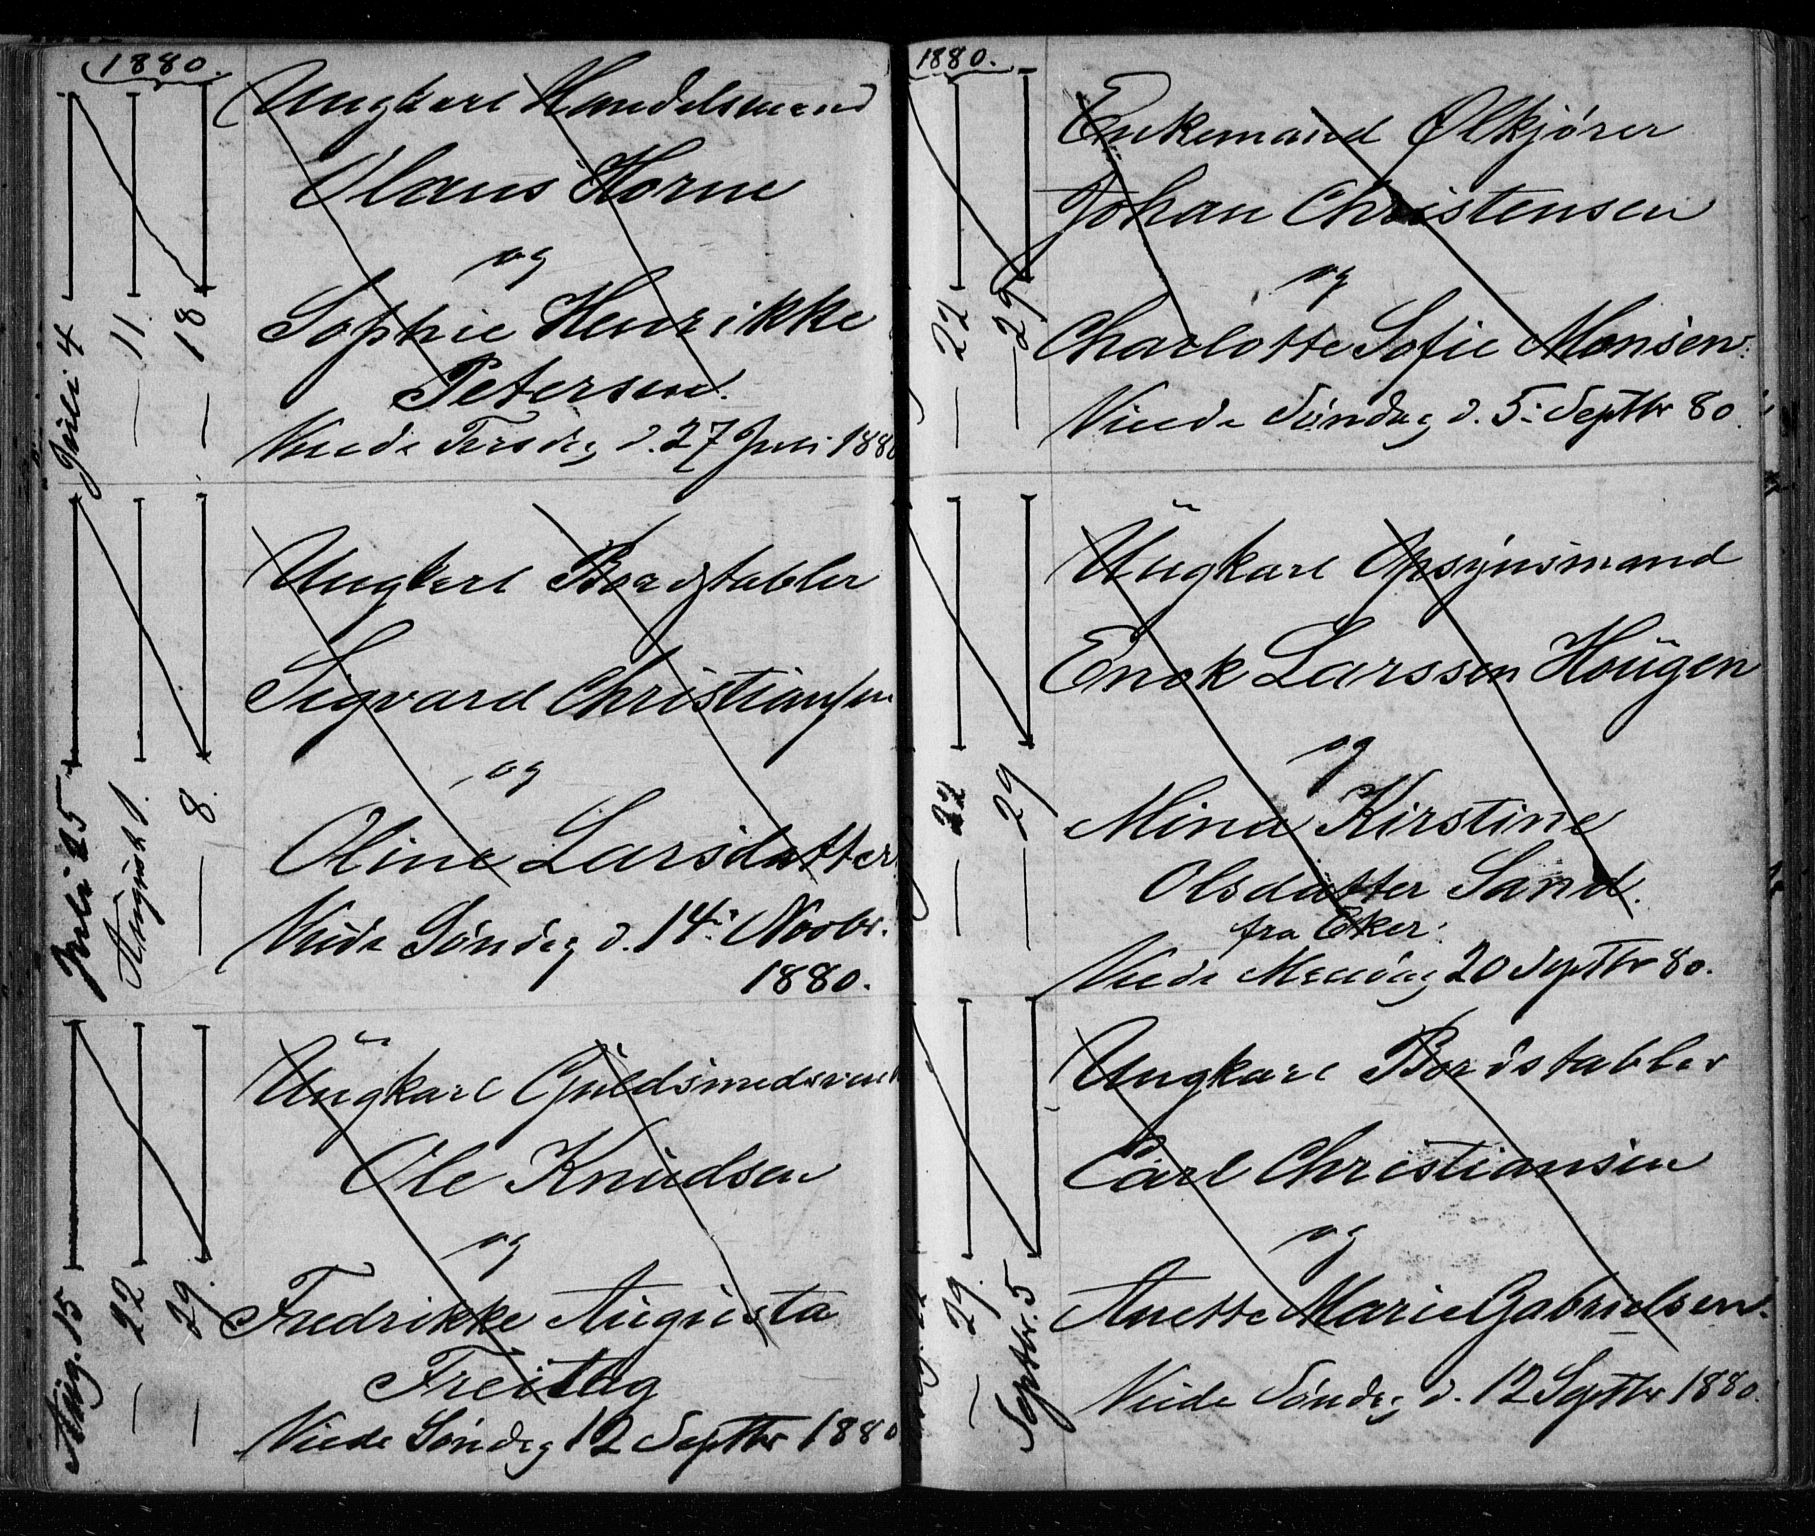 1880.
Ungkarl Handelsmand
Olaus Horne
og
Sophie Henrikke
Petersen.
Viede Tirsdag d. 27 Juli 1880
Juli 4
— 11.
— 18.
Ungkarl Bordstabler
Sigvard Christiansen
og
Oline Larsdatter
Viede Søndag d. 14: Novbr.
1880.
Juli 25
August 1.
— 8.
Ungkarl Guldsmedsvend
Ole Knudsen
og
Fredrikke Augusta
Freitag
Viede Søndag 12 Septbr 1880
Aug. 15
— 22
— 29.
1880.
Enkemand Ølkjører
Johan Christensen
og
Charlotte Sofie Monsen.
Viede Søndag d. 5: Septbr 80.
— 22
— 29
Ungkarl Opsynsmand
Enok Larssen Hougen
og
Mina Kirstine
Olsdatter Sand.
fra Eker.
Viede Mandag 20 Septbr 80.
— 22
— 29
Ungkarl Bordstabler
Carl Christiansen
og
Anette Marie Gabrielsen.
Viede Søndag d. 12 Septbr 1880.
— 29.
Septbr. 5